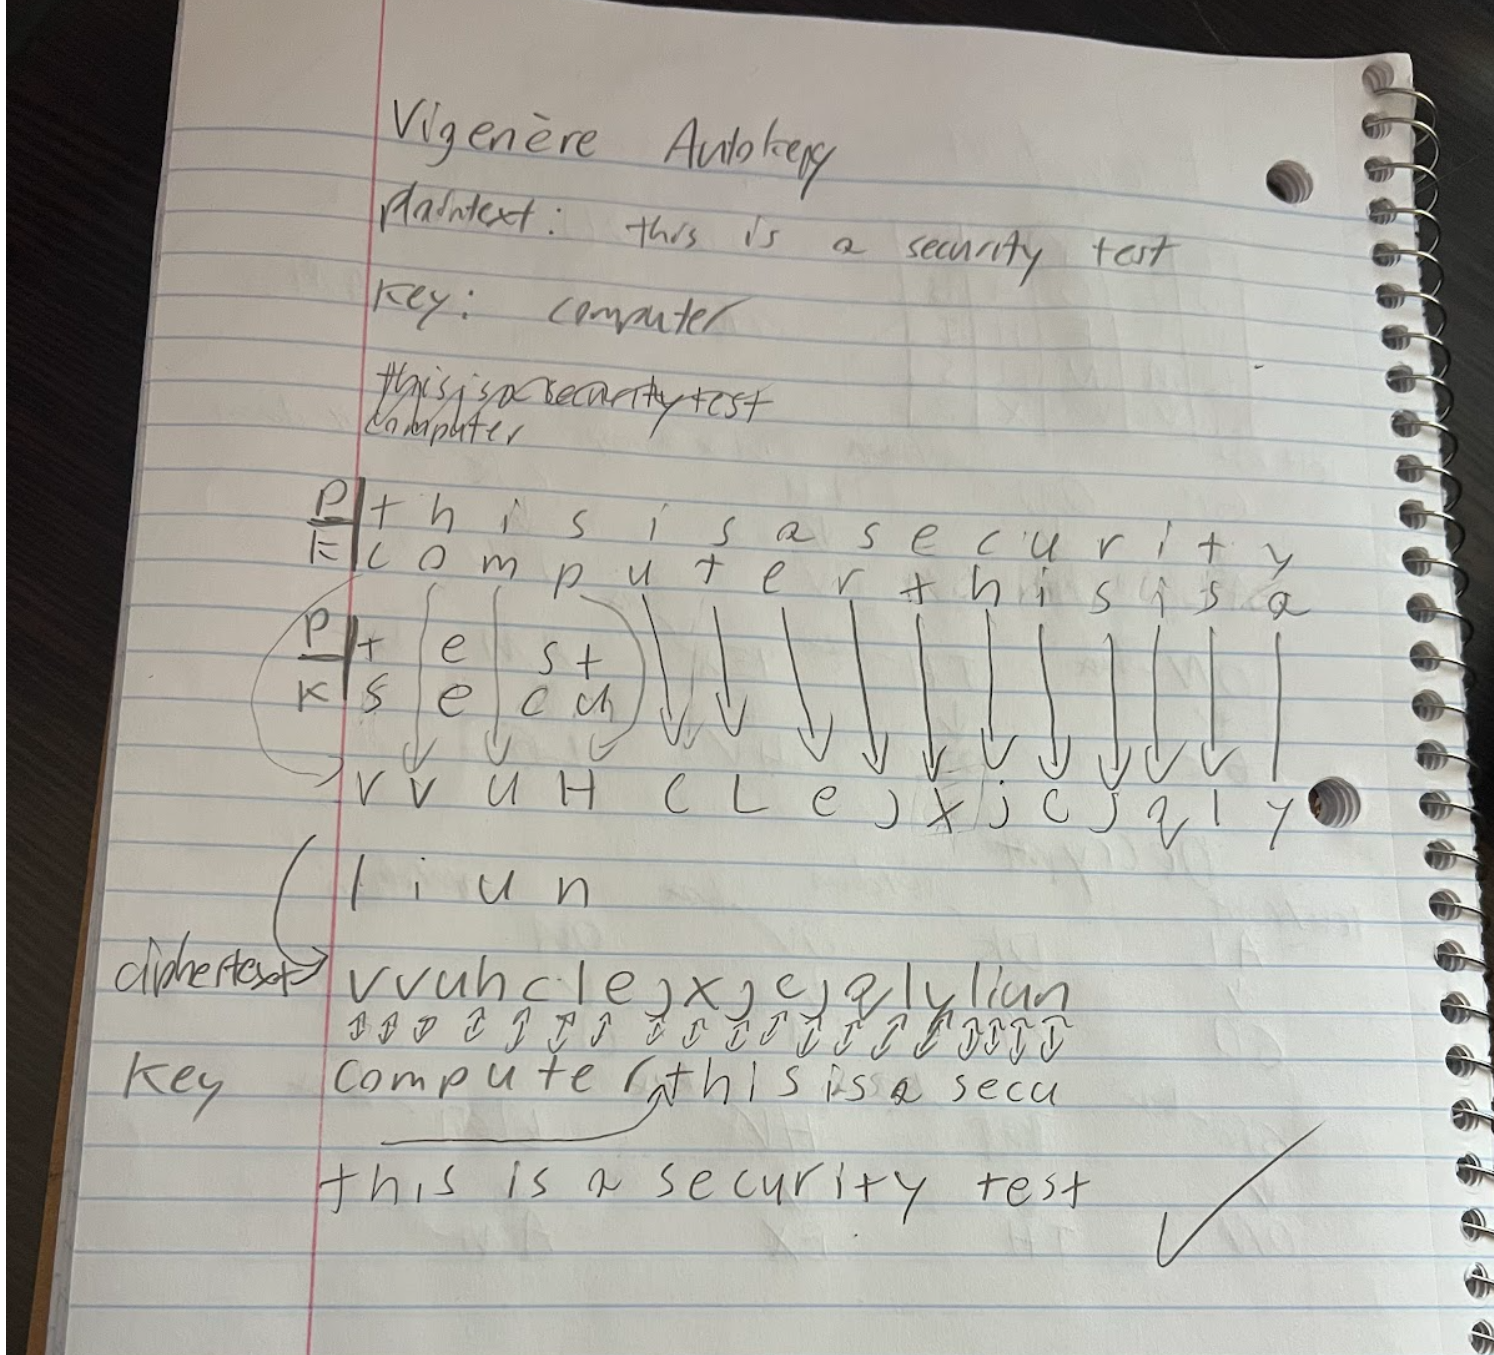 Vigenère Autokey
plaintext: this is a security test
Key: computer
thisisasecuritytest
computer
P t h i s i s a s e c u r i t y
K c o m p u t e r t h i s i s a
P t e s t
K s e c u
v v u H c L e j x j c j q l y
l i u n
ciphertext vvuhclejxjcjqlyliun
Key computer this is a secu
this is a security test